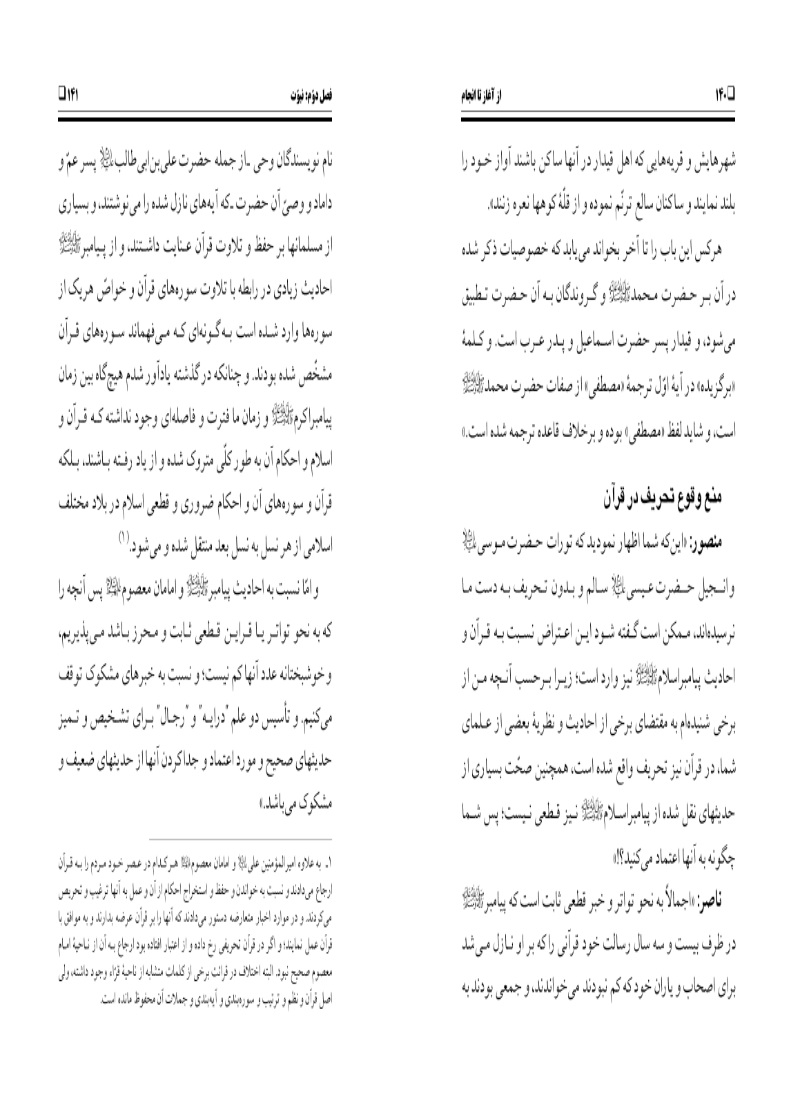 ❏ ۱۴۰
از آغاز تا انجام
شهرهایش و قریه‌هایی که اهل قیدار در آنها ساکن باشند آواز خود را
بلند نمایند و ساکنان سالع ترنّم نموده و از قلّهٔ کوهها نعره زنند».
هرکس این باب را تا آخر بخواند می‌یابد که خصوصیات ذکر شده
در آن بر حضرت محمدﷺ و گروندگان به آن حضرت تطبیق
می‌شود، و قیدار پسر حضرت اسماعیل و پدر عرب است. و کلمهٔ
«برگزیده» در آیهٔ اوّل ترجمهٔ «مصطفی» از صفات حضرت محمدﷺ
است، و شاید لفظ «مصطفی» بوده و برخلاف قاعده ترجمه شده است.»
منع وقوع تحریف در قرآن
منصور: «این‌که شما اظهار نمودید که تورات حضرت موسی
و انجیل حضرت عیسی سالم و بدون تحریف به دست ما
نرسیده‌اند، ممکن است گفته شود این اعتراض نسبت به قرآن و
احادیث پیامبراسلامﷺ نیز وارد است؛ زیرا برحسب آنچه من از
برخی شنیده‌ام به مقتضای برخی از احادیث و نظریهٔ بعضی از علمای
شما، در قرآن نیز تحریف واقع شده است، همچنین صحّت بسیاری از
حدیثهای نقل شده از پیامبراسلامﷺ نیز قطعی نیست؛ پس شما
چگونه به آنها اعتماد می‌کنید؟!»
ناصر: «اجمالاً به نحو تواتر و خبر قطعی ثابت است که پیامبرﷺ
در ظرف بیست و سه سال رسالت خود قرآنی را که بر او نازل می‌شد
برای اصحاب و یاران خود که کم نبودند می‌خواندند، و جمعی بودند به
فصل دوّم: نبوّت
۱۴۱ ❏
نام نویسندگان وحی ـ از جمله حضرت علی‌بن‌ابی‌طالب پسر عمّ و
داماد و وصیّ آن حضرت ـ که آیه‌های نازل شده را می‌نوشتند، و بسیاری
از مسلمانها بر حفظ و تلاوت قرآن عنایت داشتند، و از پیامبرﷺ
احادیث زیادی در رابطه با تلاوت سوره‌های قرآن و خواصّ هریک از
سوره‌ها وارد شده است به‌گونه‌ای که می‌فهماند سوره‌های قرآن
مشخّص شده بودند. و چنانکه در گذشته یادآور شدم هیچ‌گاه بین زمان
پیامبراکرمﷺ و زمان ما فترت و فاصله‌ای وجود نداشته که قرآن و
اسلام و احکام آن به طور کلّی متروک شده و از یاد رفته باشند، بلکه
قرآن و سوره‌های آن و احکام ضروری و قطعی اسلام در بلاد مختلف
اسلامی از هر نسل به نسل بعد منتقل شده و می‌شود.(۱)
و امّا نسبت به احادیث پیامبرﷺ و امامان معصوم پس آنچه را
که به نحو تواتر یا قراین قطعی ثابت و محرز باشد می‌پذیریم،
و خوشبختانه عدد آنها کم نیست؛ و نسبت به خبرهای مشکوک توقف
می‌کنیم. و تأسیس دو علم "درایه" و "رجال" برای تشخیص و تمیز
حدیثهای صحیح و مورد اعتماد و جداکردن آنها از حدیثهای ضعیف و
مشکوک می‌باشد.»
۱ـ به علاوه امیرالمؤمنین علی و امامان معصوم هرکدام در عصر خود مردم را به قرآن
ارجاع می‌دادند و نسبت به خواندن و حفظ و استخراج احکام از آن و عمل به آنها ترغیب و تحریص
می‌کردند. و در موارد اخبار متعارضه دستور می‌دادند که آنها را بر قرآن عرضه بدارند و به موافق با
قرآن عمل نمایند؛ و اگر در قرآن تحریفی رخ داده و از اعتبار افتاده بود ارجاع به آن از ناحیهٔ امام
معصوم صحیح نبود. البته اختلاف در قرائت برخی از کلمات متشابه از ناحیهٔ قرّاء وجود داشته، ولی
اصل قرآن و نظم و ترتیب و سوره‌بندی و آیه‌بندی و جملات آن محفوظ مانده است.